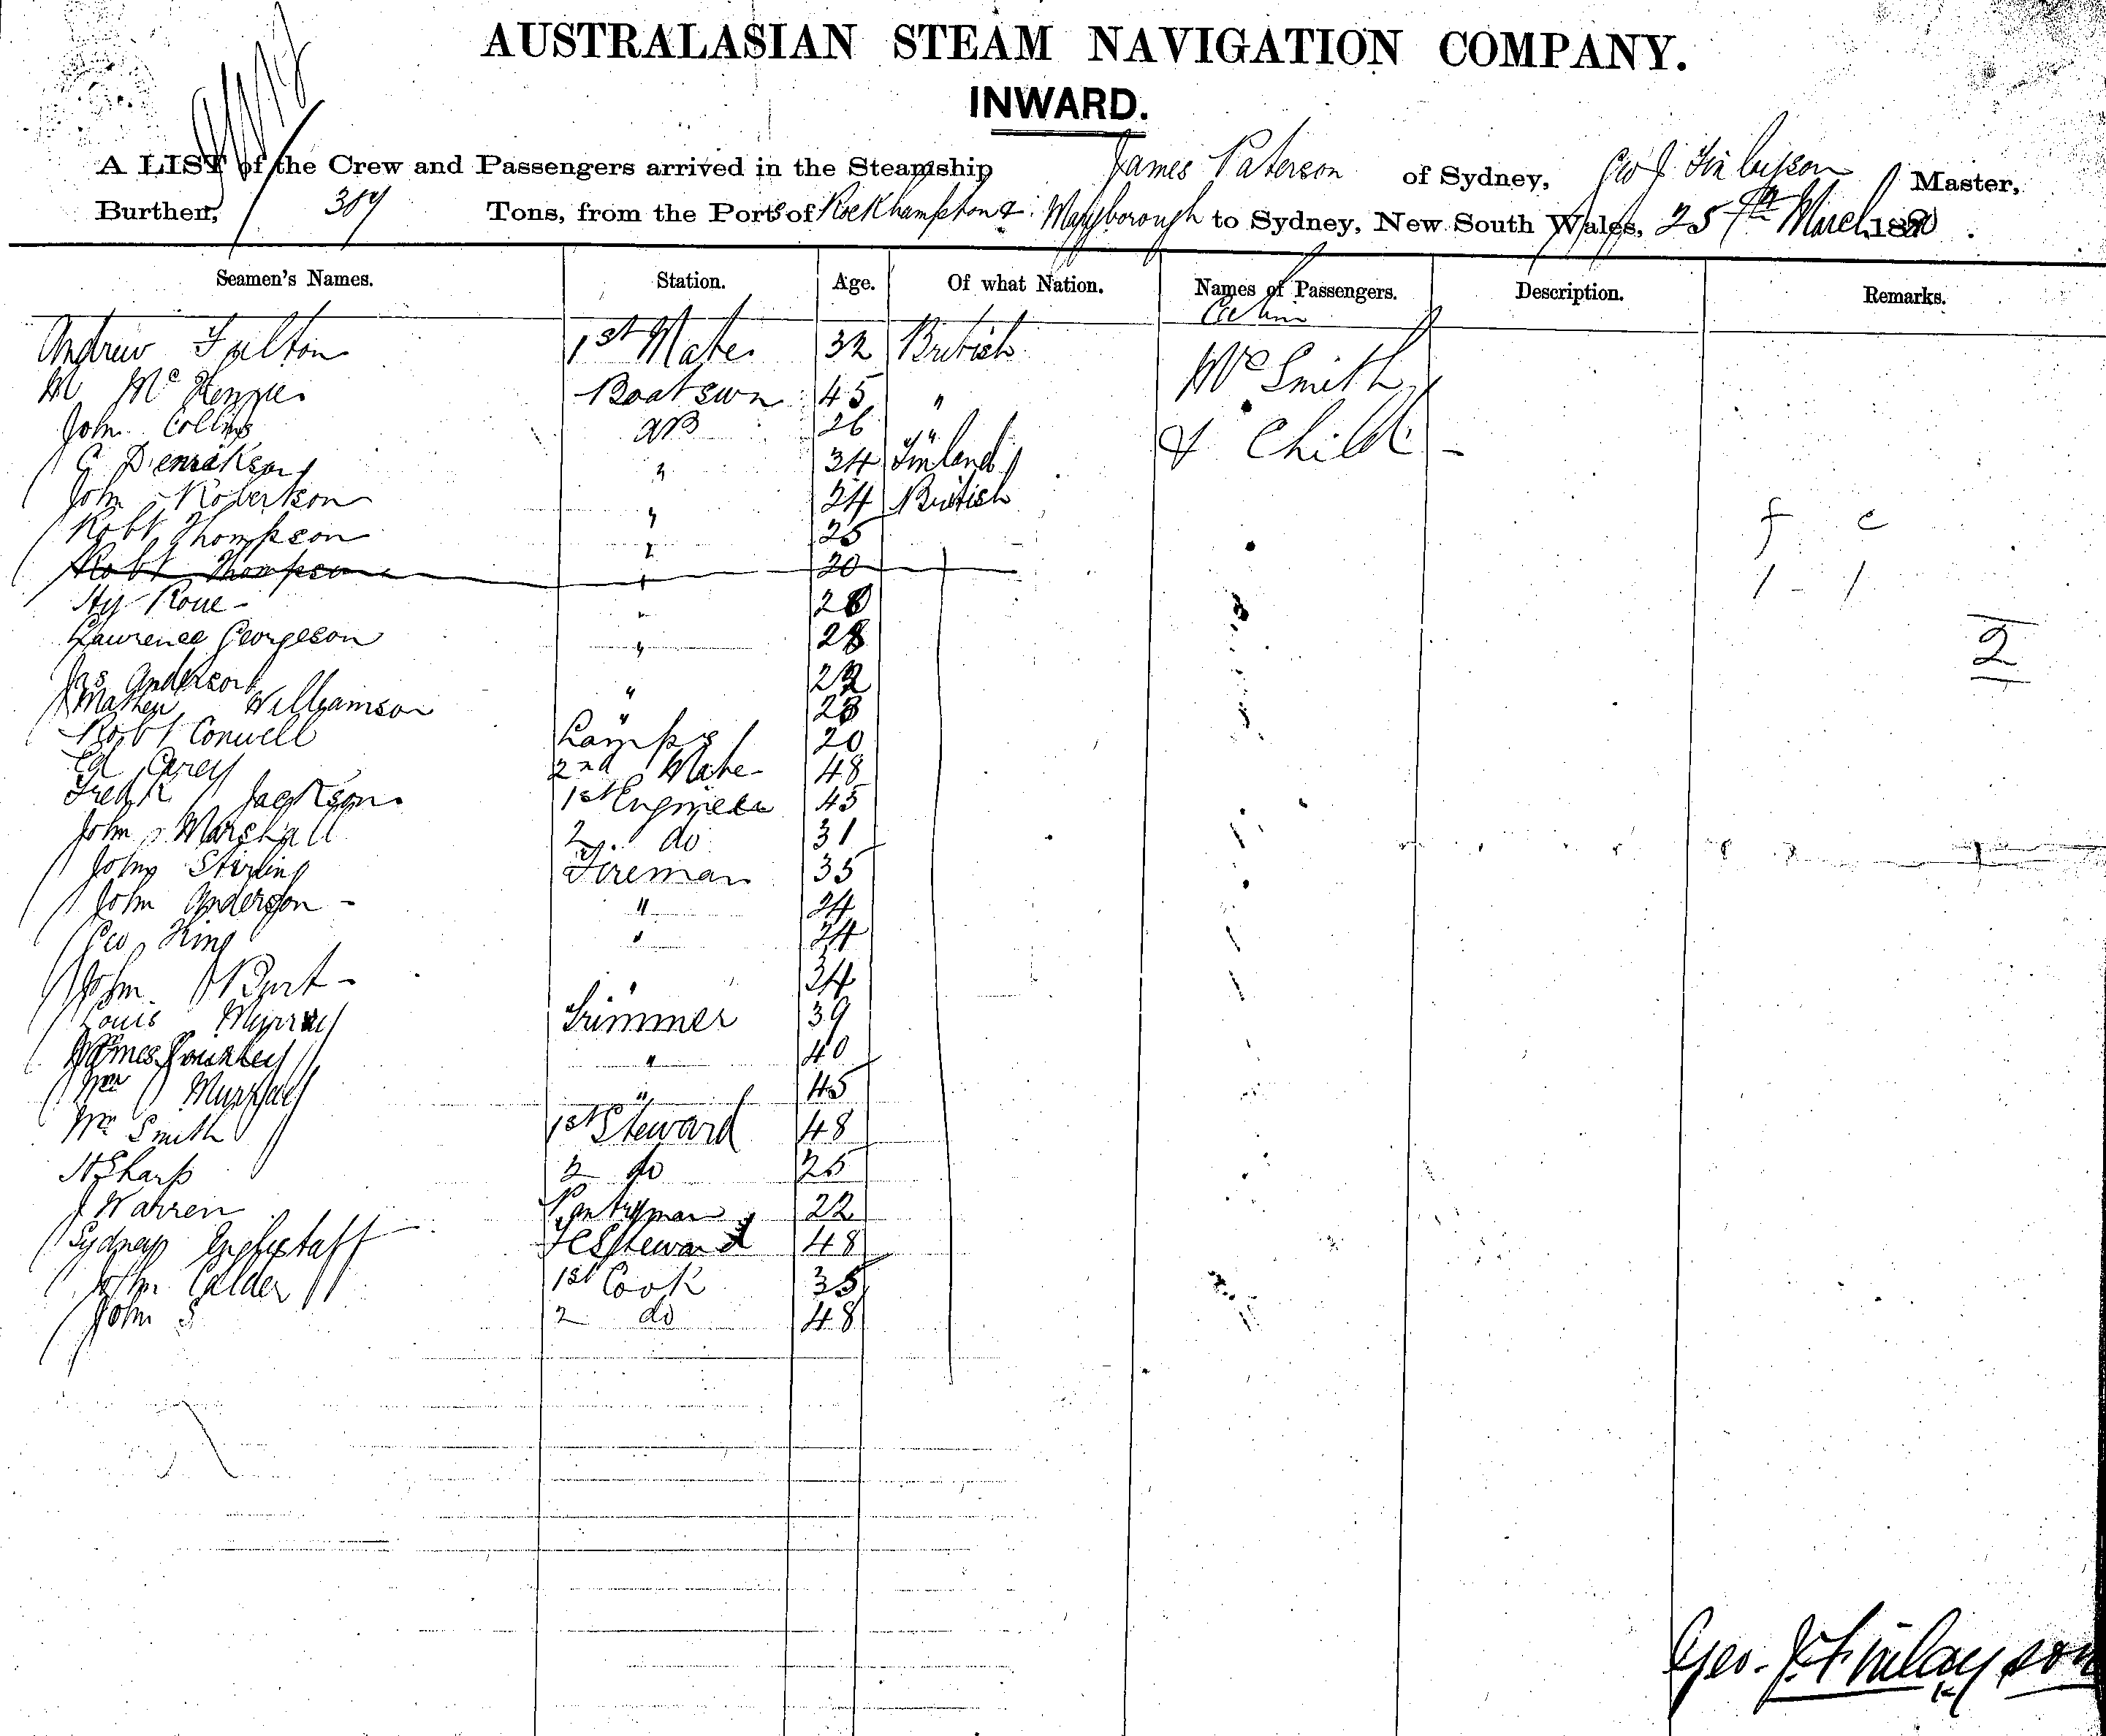 AUSTRALASIAN STEAM NAVIGATION COMPANY.
INWARD.
A LIST of the Crew and Passengers arrived in the Steamship James Paterson of Sydney, Geo J Finlayson Master,
Burthen, Tons, from the Ports of Rockhampton & Maryborough to Sydney, New South Wales, 25th March 1880
Seamen's Names. Station. Age. Of what Nation. Names of Passengers. Description. Remarks.
Cabin
Andrew Fulton 1st Mate 32 British Mrs Smith
M McKenzie Boatswn 45 "
John Collins AB 26 " & Child
G Denrikson " 34 Finland
John Robertson " 24 British
Robt Thompson " 25 f c
Robt Thompson " 20 1 - 1
Hy Roue " 28
Laurence Georgeson " 28 2
Jas Anderson " 22
Mathew Williamson " 28
Robt Conwell Lamps 20
Ed Carey 2nd Mate 48
Fredk Jackson 1st Engineer 45
John Marshall 2 do 31
John Stirling Fireman 35
John Anderson " 24
Geo King " 24
John Burt " 34
Louis Murray Trimmer 39
James " 40
Wm Murphy " 45
Wm Smith 1st Steward 48
H Sharp 2 do 25
J Warren Pantryman 22
Sydney 48
John Calder 1st Cook 35
John S 2 do 48
Geo. J. Finlayson